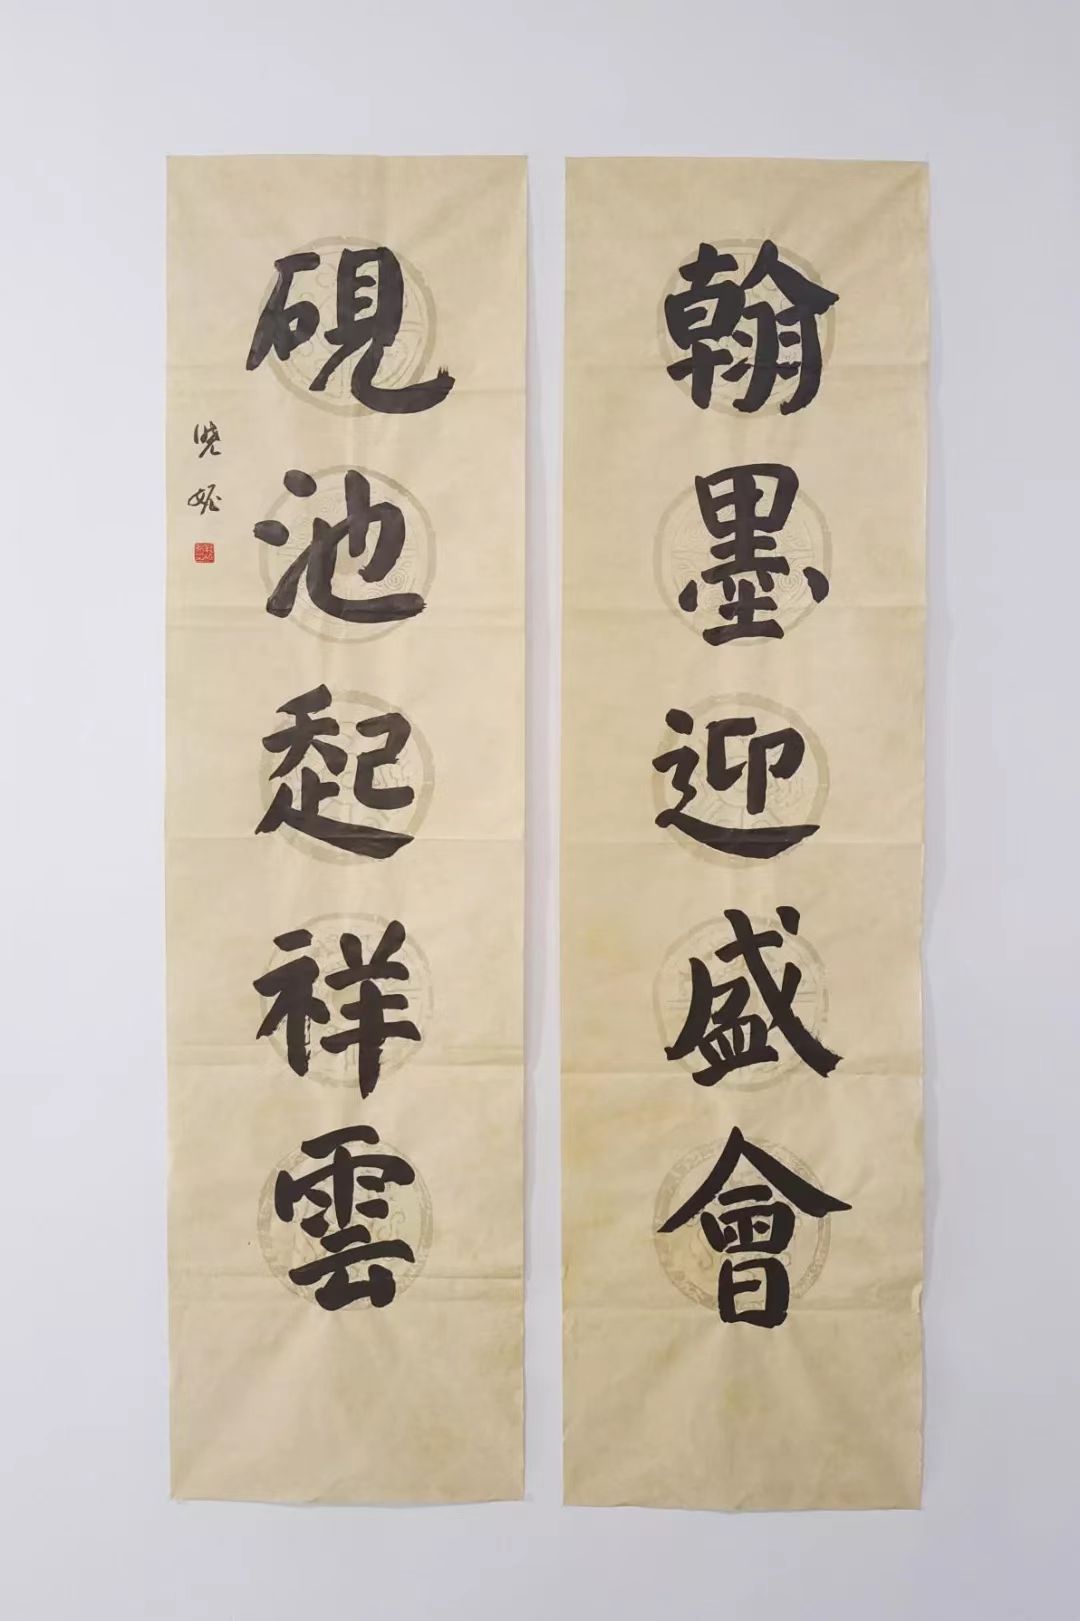 翰墨迎盛會
硯池起祥雲
曉妮